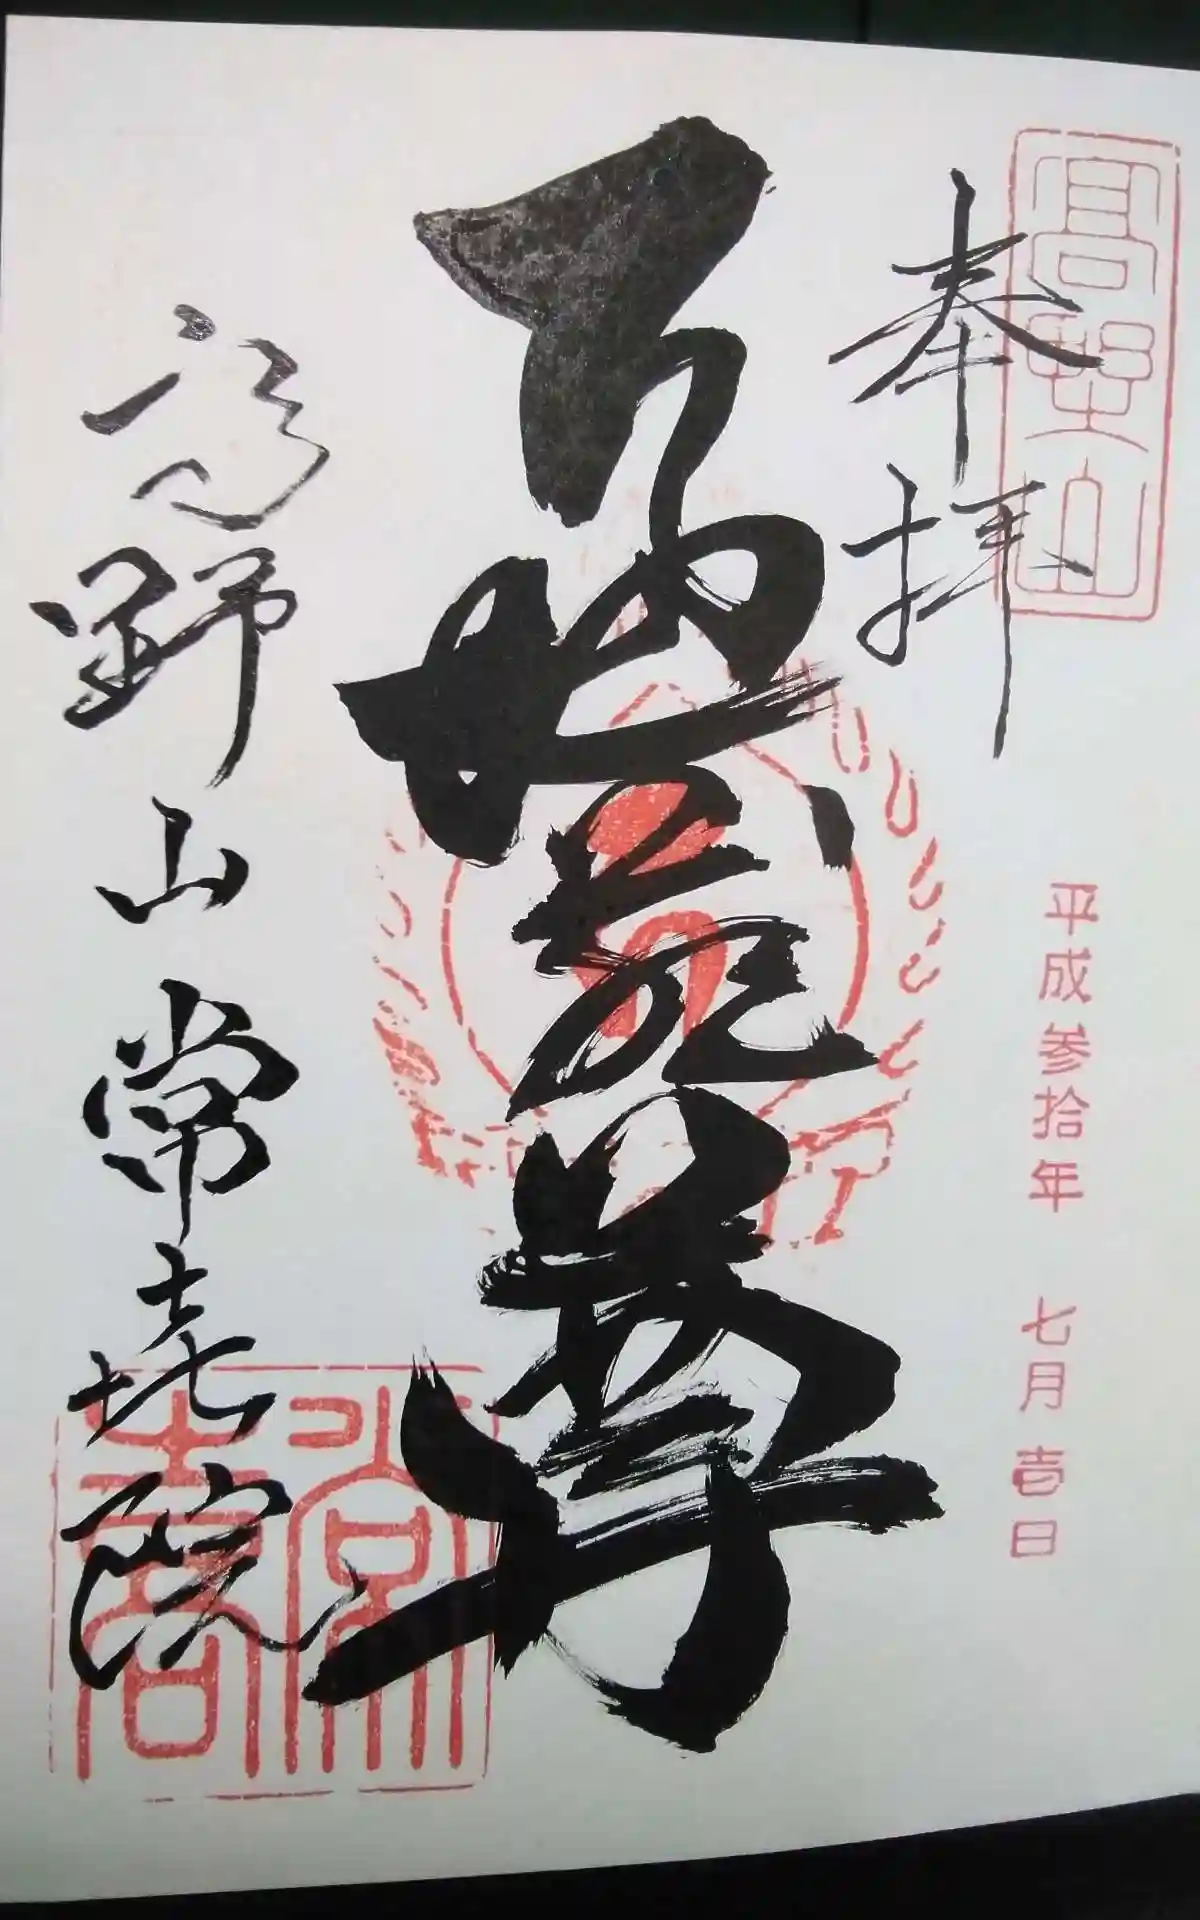 高野山
奉拝
平成参拾年 七月壱日
地蔵尊
高野山常喜院